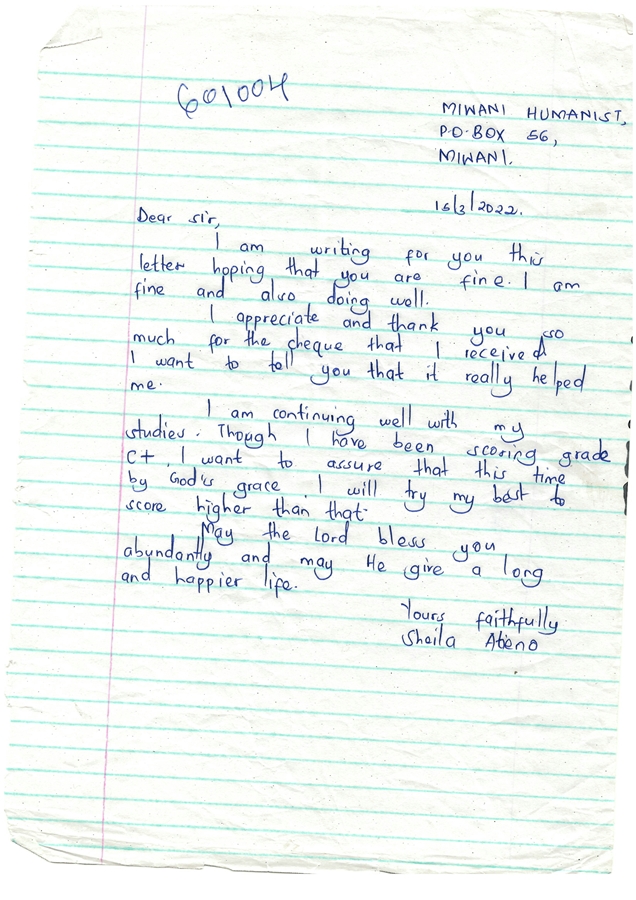 601004
MIWANI HUMANIST,
P.O. BOX 56,
MIWANI.
15/3/2022.
Dear sir,
I am writing for you this
letter hoping that you are fine. I am
fine and also doing well.
I appreciate and thank you so
much for the cheque that I received
I want to tell you that it really helped
me.
I am continuing well with my
studies. Though I have been scoring grade
C+. I want to assure that this time
by God's grace I will try my best to
score higher than that.
May the Lord bless you
abundantly and may He give a long
and happier life.
Yours faithfully
Sheila Atieno